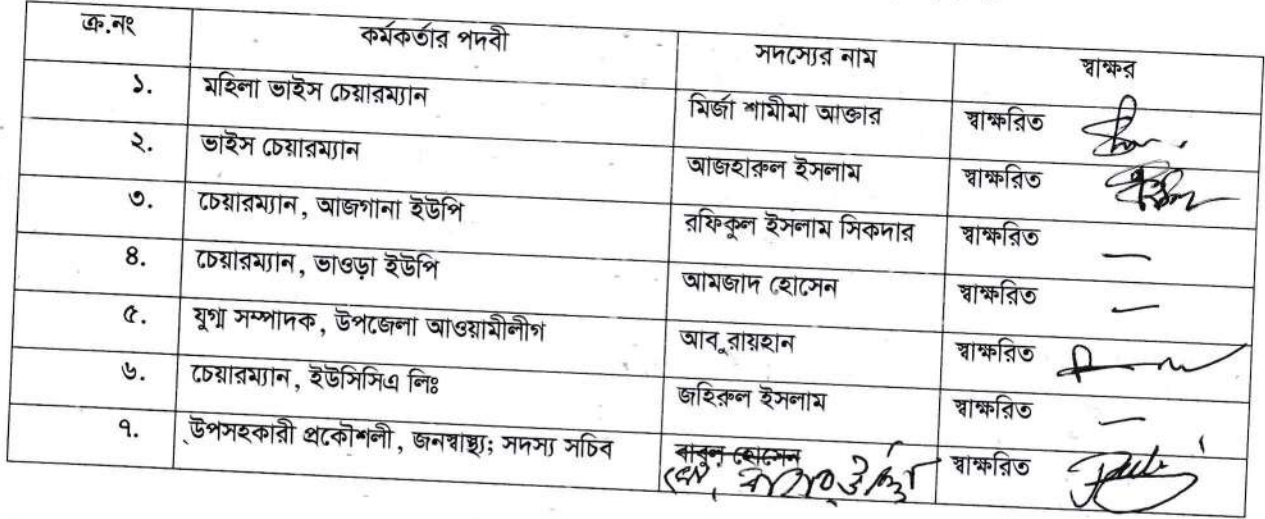 ক্র.নং কর্মকর্তার পদবী সদস্যের নাম স্বাক্ষর
১. মহিলা ভাইস চেয়ারম্যান মির্জা শামীমা আক্তার স্বাক্ষরিত
২. ভাইস চেয়ারম্যান আজহারুল ইসলাম স্বাক্ষরিত
৩. চেয়ারম্যান, আজগানা ইউপি রফিকুল ইসলাম সিকদার স্বাক্ষরিত —
৪. চেয়ারম্যান, ভাওড়া ইউপি আমজাদ হোসেন স্বাক্ষরিত —
৫. যুগ্ম সম্পাদক, উপজেলা আওয়ামীলীগ আবু রায়হান স্বাক্ষরিত
৬. চেয়ারম্যান, ইউসিসিএ লিঃ জহিরুল ইসলাম স্বাক্ষরিত —
৭. উপসহকারী প্রকৌশলী, জনস্বাস্থ্য; সদস্য সচিব বাবুল হোসেন স্বাক্ষরিত